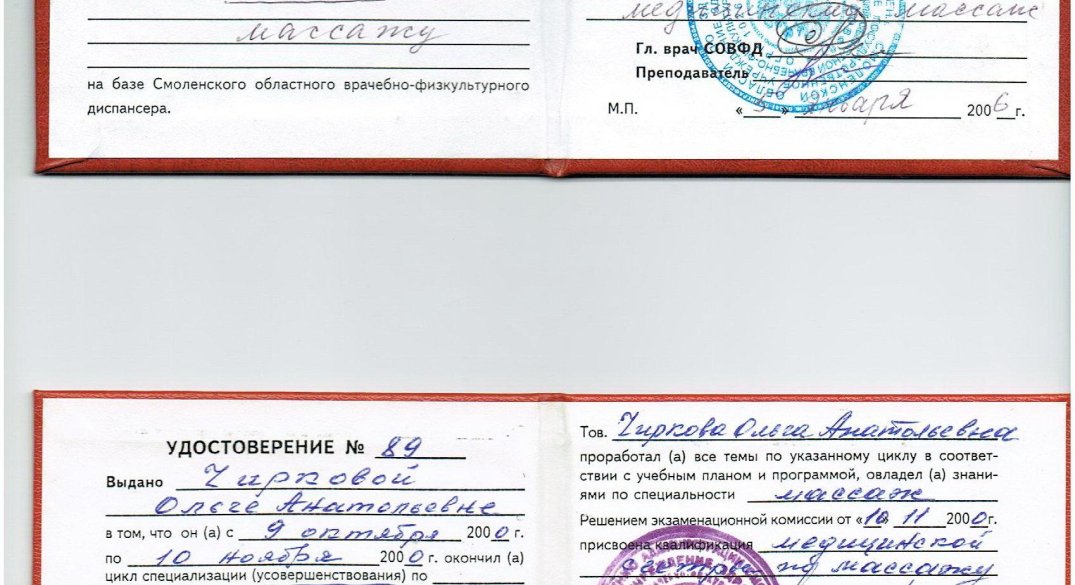 массажу
на базе Смоленского областного врачебно-физкультурного
диспансера.
медицинский массаж
Гл. врач СОВФД
Преподаватель
М.П. «5» января 2006 г.
УДОСТОВЕРЕНИЕ № 89
Выдано Чирковой
Ольге Анатольевне
в том, что он (а) с 9 октября 2000 г.
по 10 ноября 2000 г. окончил (а)
цикл специализации (усовершенствования) по
Тов. Чиркова Ольга Анатольевна
проработал (а) все темы по указанному циклу в соответ-
ствии с учебным планом и программой, овладел (а) знани-
ями по специальности массаж
Решением экзаменационной комиссии от «10» 11 2000г.
присвоена квалификация медицинской
сестры по массажу